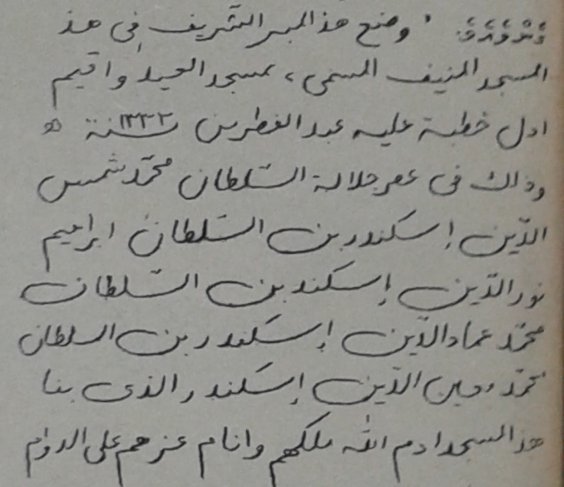 وضع هذ المبر الشريف في هذ
المسجد المنيف المسمى، بمسجد العيد واقيم
اول خطبة عليه عبد الفطر من سنة ١٣٣٣ ه
وذالك في عصر جلالة السلطان محمّد شمس
الدّين إسكندر بن السّلطان ابراهيم
نور الدّين إسكند بن السّلطان
محمّد عماد الدّين إسكندر بن السلطان
محمّد معين الدّين إسكندر الذي بنا
هذ المسجد ادم الله ملكهم وانام عزهم على الدوام